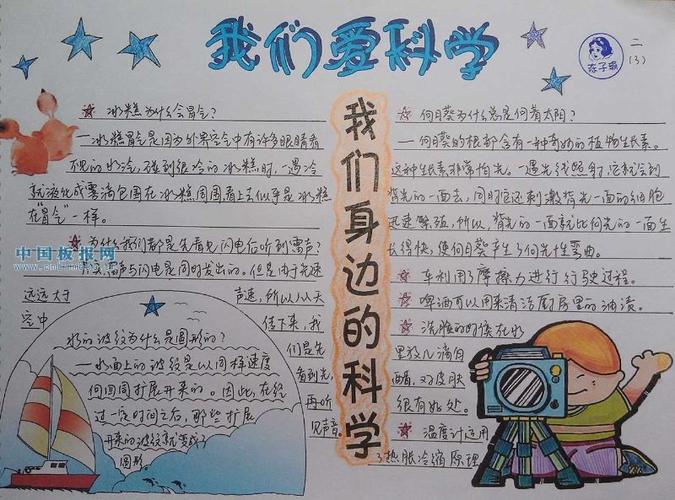 我们爱科学
苏子琪
二
(3)
我们身边的科学
冰糕为什么会冒气?
—冰糕冒气是因为外界空气中有许多眼睛看
不见的水汽,碰到很冷的冰糕时,一遇冷
就液化成雾滴包围在冰糕周围看上去似乎是冰糕
在"冒气"一样。
为什么我们都是先看见闪电后听到雷声?
雷声与闪电是同时发出的。但是由于光速
远远大于
声速,所以从天
空中
传下来,我
们是先
看到光,
再听
见声音。
水的波纹为什么是圆形的?
—水面上的波纹是以同样速度
向四周扩展开来的。因此,在经
过一段时间之后,那些扩展
开来的波纹就变成了
圆形。
向日葵为什么总是向着太阳?
—向日葵的根部含有一种奇妙的植物生长素。
这种生长素非常怕光。一遇光线照射,它就会到
背光的一面去,同时它还刺激背光一面的细胞
迅速繁殖,所以,背光的一面就比向光的一面生
长得快,使向日葵产生了向光性弯曲。
车利用了摩擦力进行行驶过程。
啤酒可以用来清洁厨房里的油渍。
洗脸的时候在水
里放几滴白
醋,对皮肤
很有好处。
温度计运用
了热胀冷缩原理
中国板报网